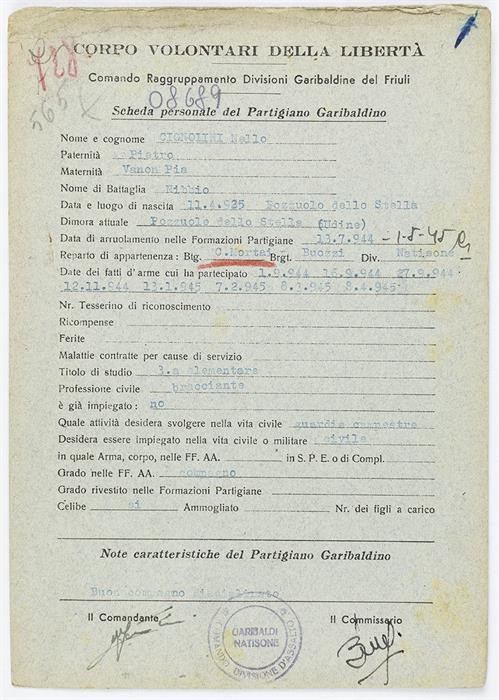 728
565
CORPO VOLONTARI DELLA LIBERTÀ
Comando Raggruppamento Divisioni Garibaldine del Friuli
08689
Scheda personale del Partigiano Garibaldino
Nome e cognome CIGNOLINI Nello
Paternità Pietro
Maternità Vanon Pia
Nome di Battaglia Nibbio
Data e luogo di nascita 11.4.925 Pozzuolo dello Stella
Dimora attuale Pozzuolo dello Stella (Udine)
Data di arruolamento nelle Formazioni Partigiane 13.7.944 -1-5-45
Reparto di appartenenza: Btg. C.Mortai - Buozzi Brgt. Div. Natisone
Date dei fatti d'arme cui ha partecipato 1.9.944 16.9.944 27.9.944
12.11.944 13.1.945 7.2.945 8.3.945 8.4.945
Nr. Tesserino di riconoscimento
Ricompense
Ferite
Malattie contratte per cause di servizio
Titolo di studio 3.a elementare
Professione civile bracciante
è già impiegato: no
Quale attività desidera svolgere nella vita civile guardia campestre
Desidera essere impiegato nella vita civile o militare civile
in quale Arma, corpo, nelle FF. AA. in S. P. E. o di Compl.
Grado nelle FF. AA. compagno
Grado rivestito nelle Formazioni Partigiane
Celibe si Ammogliato Nr. dei figli a carico
Note caratteristiche del Partigiano Garibaldino
Buon compagno disciplinato
Il Comandante Il Commissario
GARIBALDI
NATISONE
COMANDO DIVISIONE D'ASSALTO